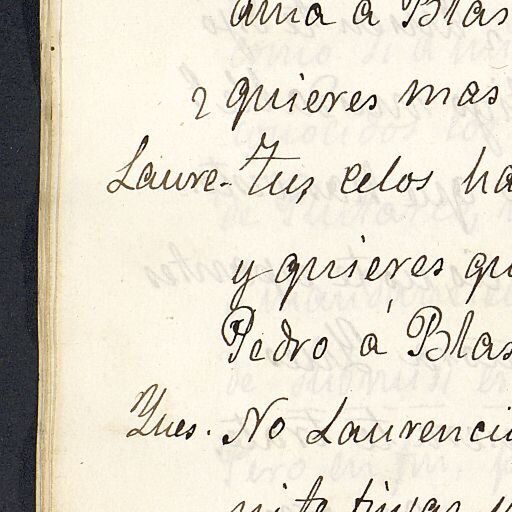 ama a Blas
¿quieres mas
Laure. Tus celos ha
y quieres qu
Pedro á Blas
Ynes. No Laurenci